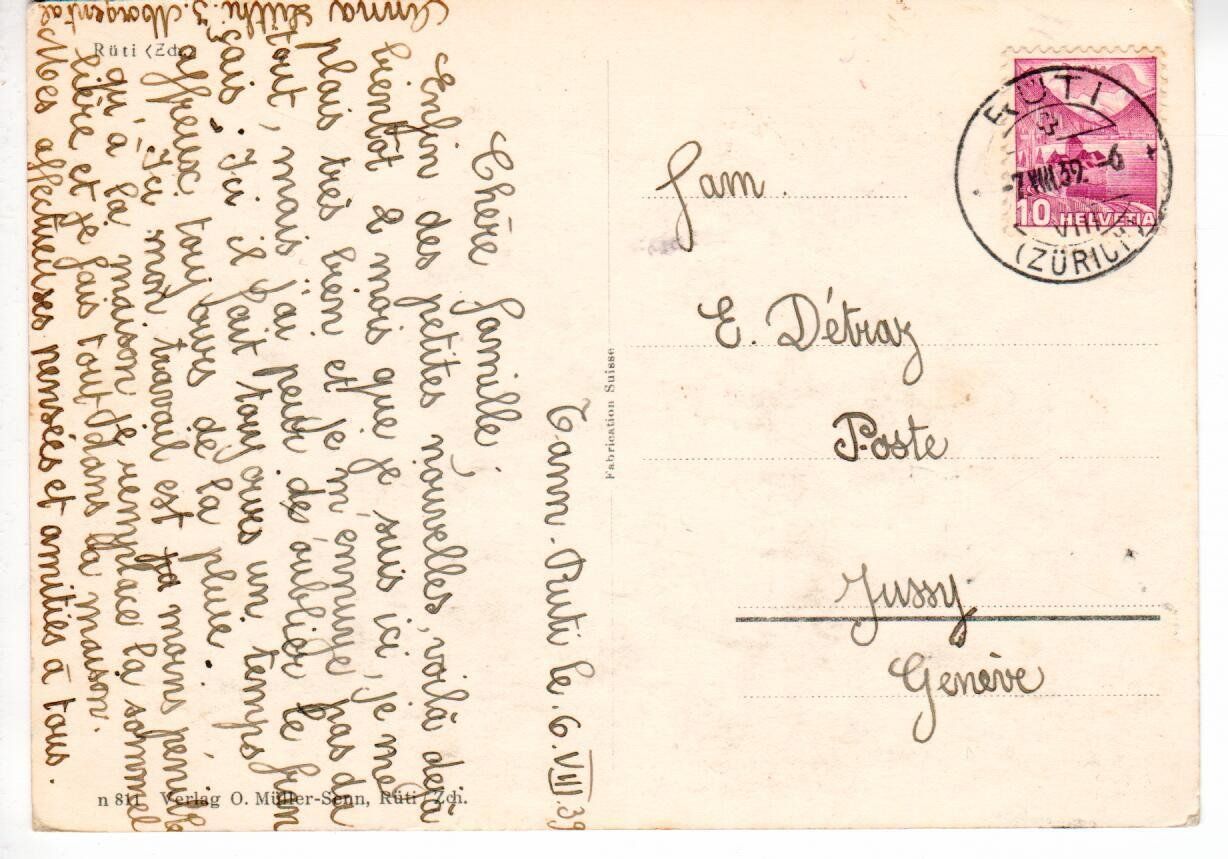 Rüti (Zch.)
Tann-Ruti le 6.VIII.39
Chère famille,
Enfin des petites nouvelles, voilà déjà
bientôt 2 mois que je suis ici, je me
plais très bien et je m'ennuye pas du
tout, mais j'ai peur de oublier le fran
çais. Ici il fait toujours un temps
affreux toujours de la pluie.
Ici mon travail est moins pénible
qu'à la maison je remplace la sommel
lière et je fais tout dans la maison.
Mes affectueuses pensées et amitiés à tous.
Anna Lüthi. z. Morgental
n 811 Verlag O. Müller-Senn, Rüti Zch.
Fabrication Suisse
RÜTI
-7.VIII.39.-6
(ZÜRICH)
10 HELVETIA
Fam.
E. Détraz
Poste
Jussy
Genève